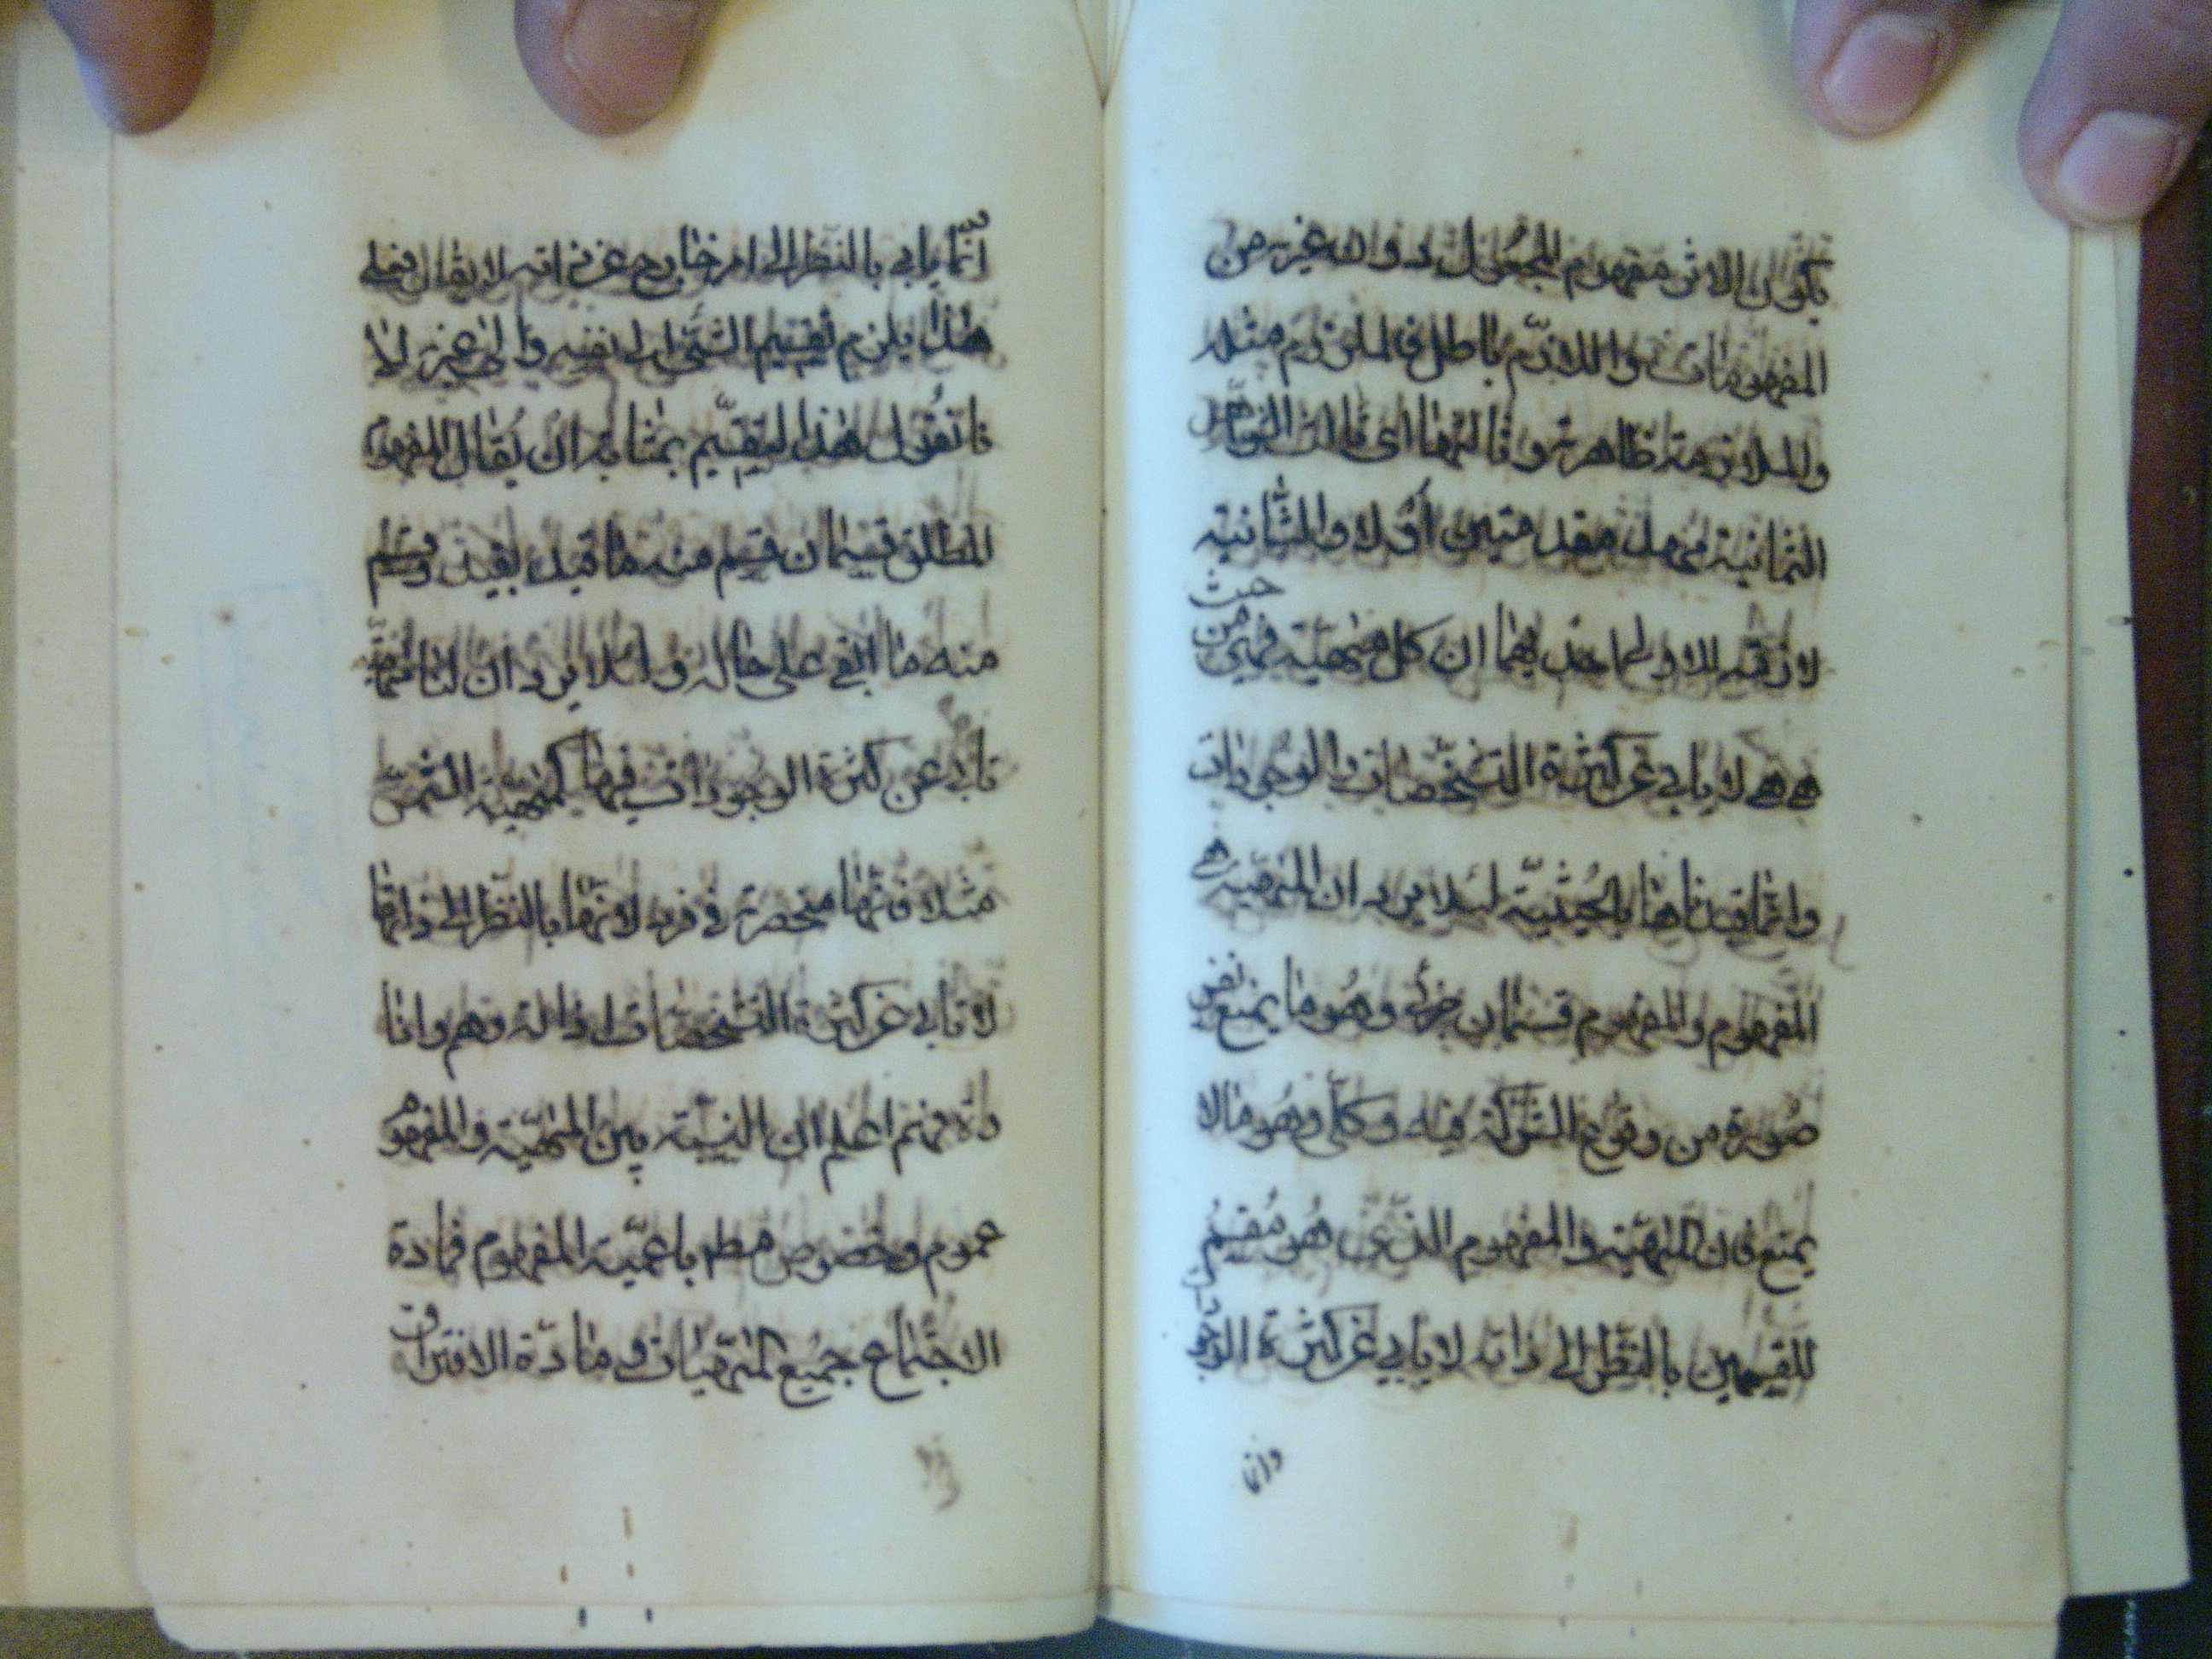 يكون الاثر مفهوم المجعول دون غيره من
المفهومات واللازم باطل فالملزوم مثله
والملازمة ظاهرة وثالثها اى ثالث الوجوه
الثمانية تمهيد مقدمتين أولا والثانية
لازمة للاولى احديهما ان كل مهية فهي من حيث
هي هي لا يابى عن كثرة التشخصات والوجودات
وانما قيدناها بالحيثية لئلا يرد ان المهية هي
المفهوم والمفهوم قسمان جزئى وهو ما يمنع نفس
صورة من وقوع الشركة فيه وكلى وهو ما لا
يمنع فان المهية والمفهوم الذى هو مقسم
للقسمين بالنظر الى ذاته لا يابى عن كثرة الوجودات
وانما
انما يابى بالنظر الى امر خارج عن غيره انه لا يقال فعلى
هذا يلزم تقسيم الشئ الى نفسه والى غيره لا
نا نقول هذا التقسيم بمثابة ان يقال المفهوم
المطلق قسمان قسم منه ما قيد بقيد وقسم
منه ما ابقى على حاله ولئلا يرد ان لنا مهية
تابى عن كثرة الوجودات فيها كمهية الشمس
مثلا فانها منحصرة في فرد لانها بالنظر الى ذاتها
لا تابى عن كثرة التشخصات ازالة وهم وانا
رة فهم اعلم ان النسبة بين المهية والمفهوم
عموم وخصوص مط باعمية المفهوم فمادة
الاجتماع جميع المهيات ومادة الافتراق